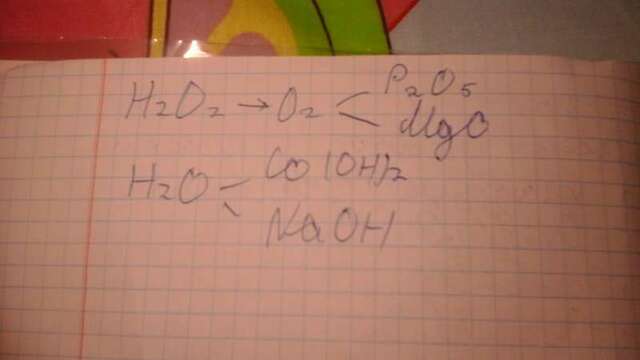 H₂O₂ → O₂ < P₂O₅
MgO
H₂O < Co(OH)₂
NaOH